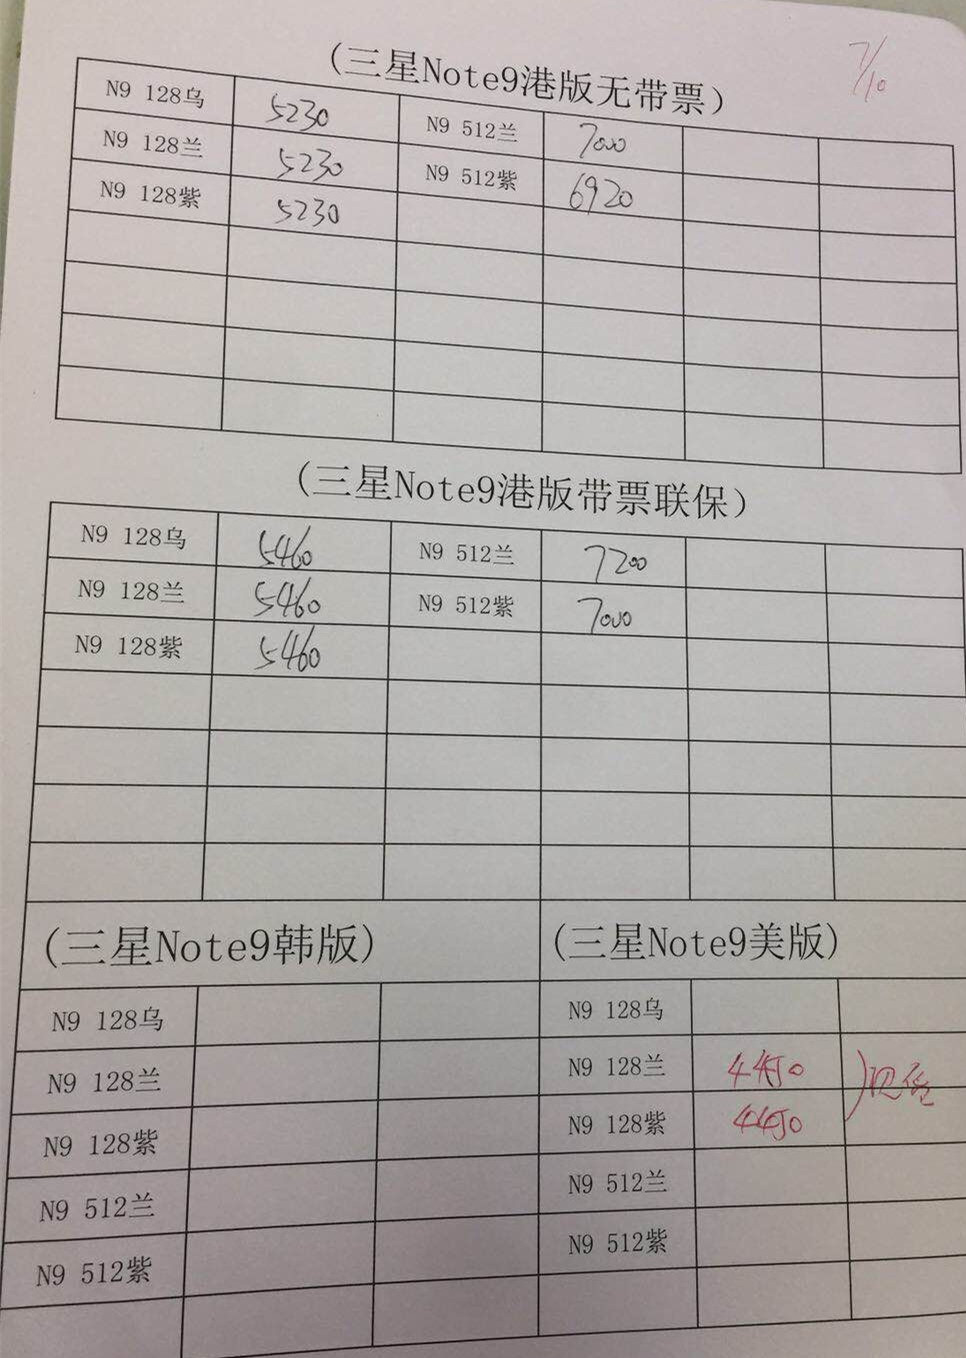 7/10
(三星Note9港版无带票)
N9 128乌 5230 N9 512兰 7000
N9 128兰 5230 N9 512紫 6920
N9 128紫 5230
(三星Note9港版带票联保)
N9 128乌 5460 N9 512兰 7200
N9 128兰 5460 N9 512紫 7000
N9 128紫 5460
(三星Note9韩版) (三星Note9美版)
N9 128乌 N9 128乌
N9 128兰 N9 128兰 4450
N9 128紫 N9 128紫 4450
N9 512兰 N9 512兰
N9 512紫 N9 512紫